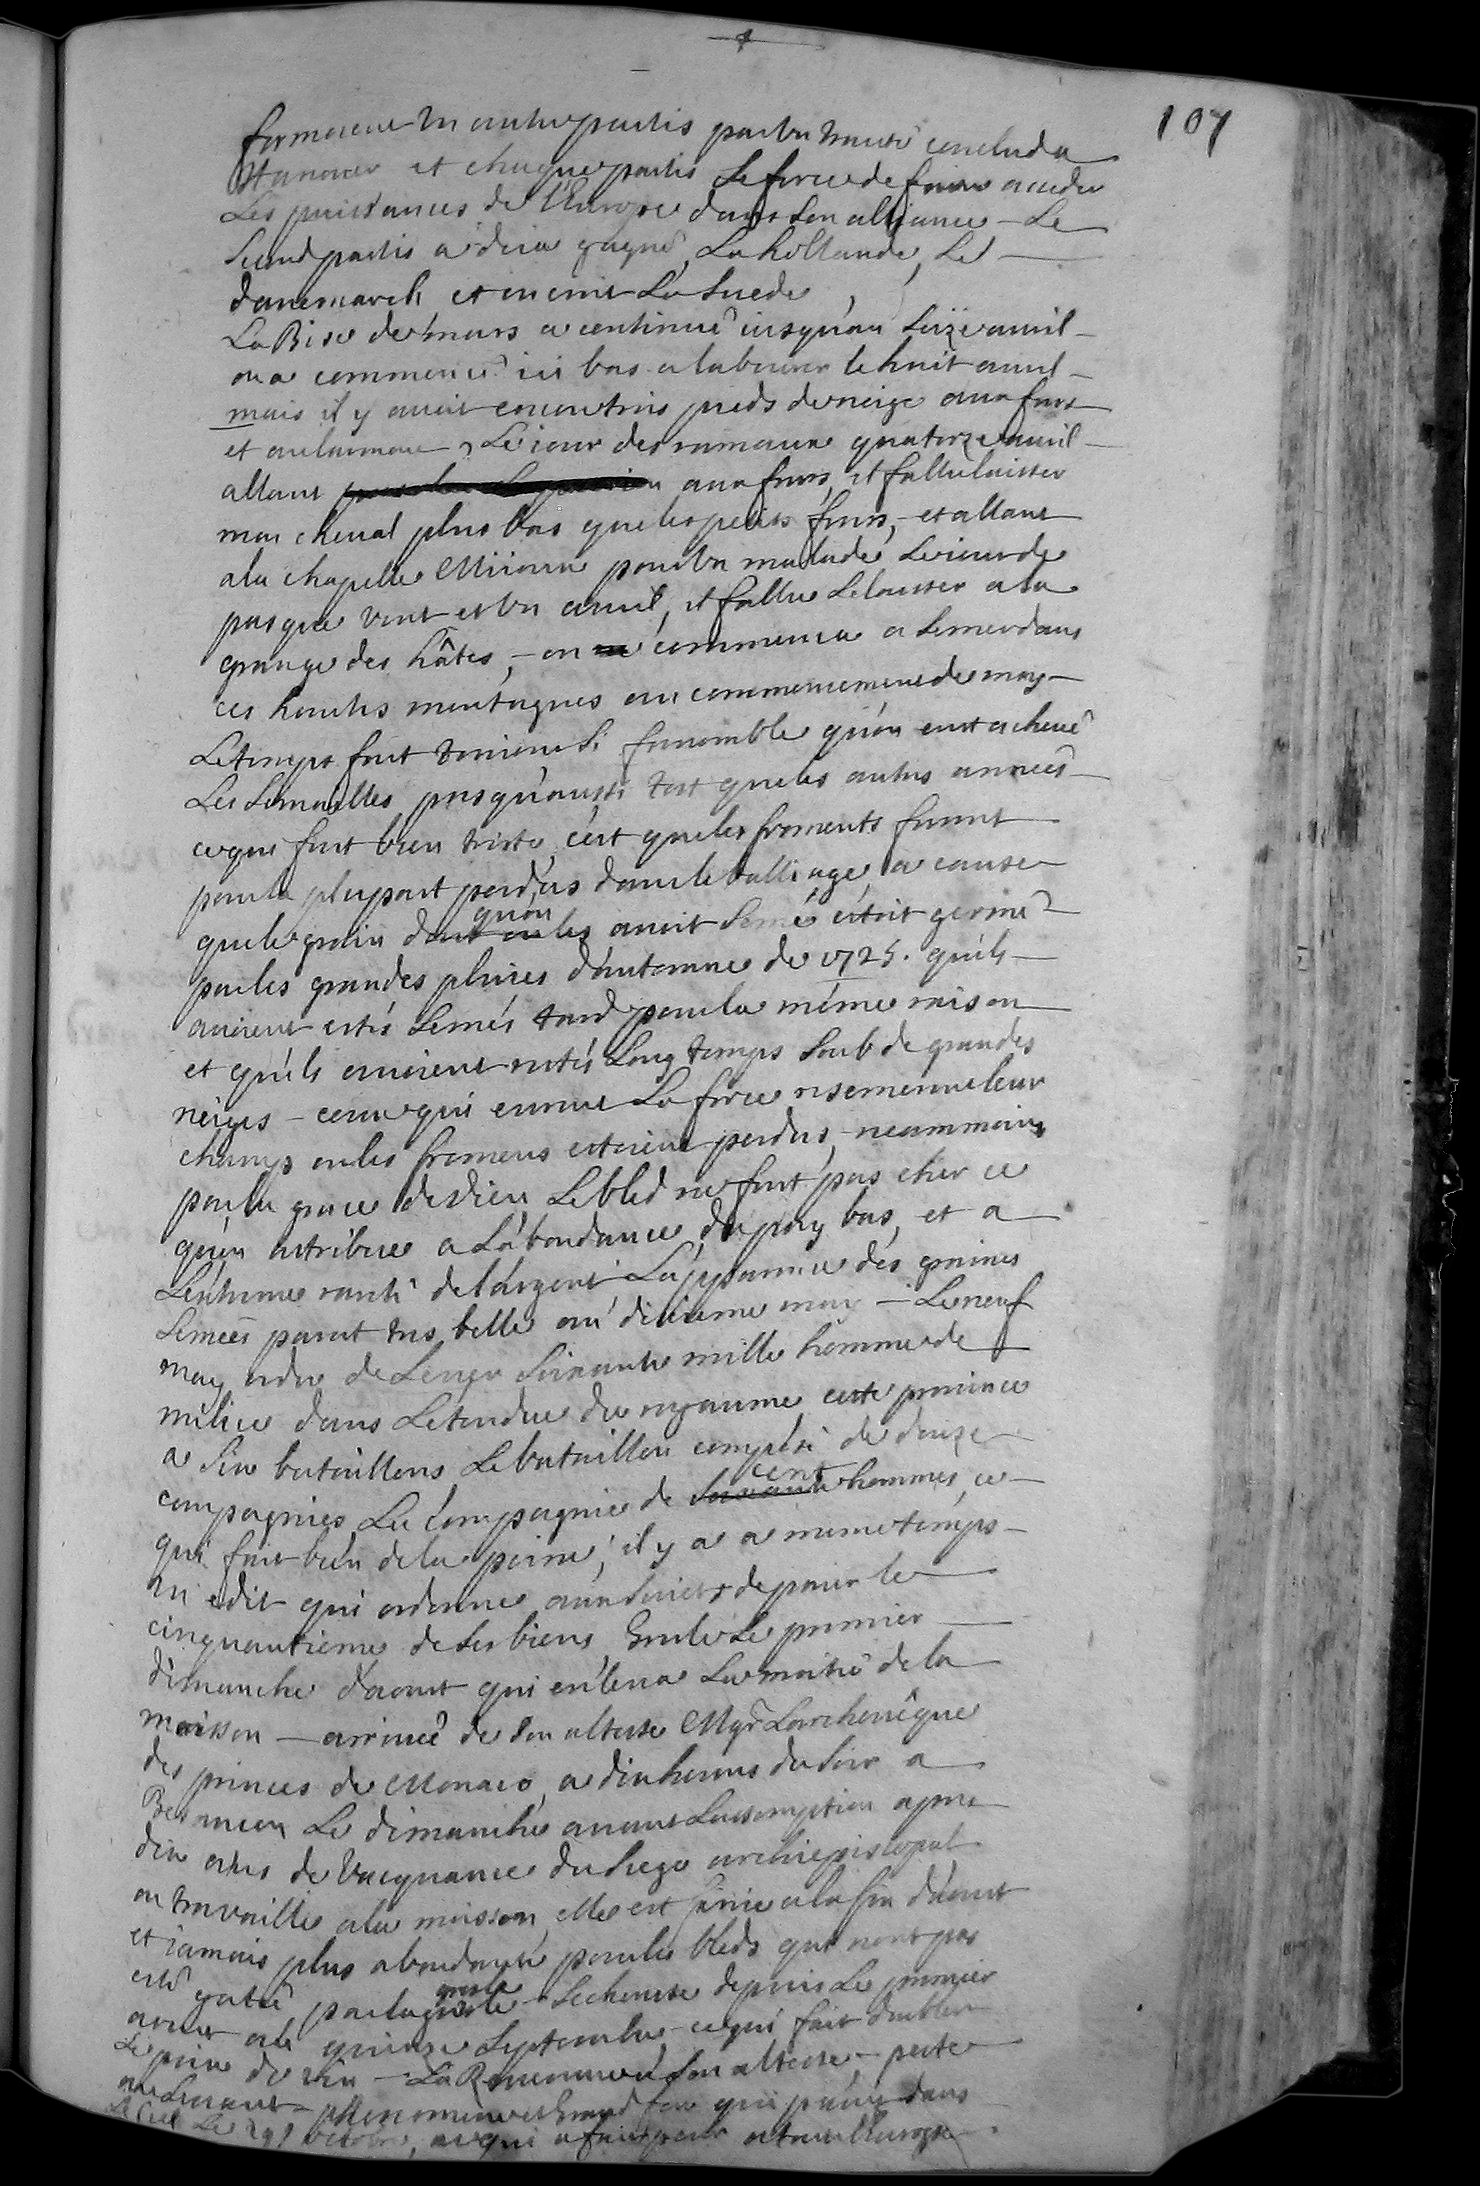 107
formerent un autre partis par un traité conclud a
Hanover et chaque partis se force de faire acceder
Les puissances de l'Europe dans son alliance - Le
second partis a deia gagné, La hollande, Le
danemarch et encint La Suede,
La Bise de mars a continué iusqu'au seize auril
on a commencé ici bas a labourer le huit auril
mais il y auoit encor trois pieds de neige aux fours
et au Le iour des rameaux quatorze auril
allant aux fours, il fallu laisser
mon cheual plus bas que les petits fours, et allant
a la chapelle Miioux pour un malade Le iour de
pasque vint et un auril, il fallu Le laisser a la
grange des hâtes, - on commenca a semer dans
ces hautes montagnes au commencement de may
Le temps fut si fauorable qu'on eut acheué
Les Semailles presqu'aussi tost que les autres années
ce qui fust bien triste, c'est que les froments furent
pour la plupart perdus dans le balliage a cause
que le grain qu'on auoit semé étoit germé
par les grandes pluies d'automne de 1725. qu'ils
auoient estés semés tard pour la même raison
et qu'ils auoient restés Long temps soub de grandes
neiges - ceux qui eurent La force resemerent leur
champs ou les fromens estoient perdus, neammoins
par la grace de dieu Le bled ne fut pas cher ce
qu'on attribue a L'abondance du pay bas, et a
L'extreme rareté de l'argent, L'apparence des graines
semées parut tres belle au dixieme may - Le neuf
may ordre de Leuer soixante mille homme de
milice dans L'etendue du royaume cette prouince
a six bataillons Le bataillon composé de douze
compagnies, La compagnie de cent hommes, ce
qui fait bien de la peine; il y a a meme temps
un edit qui ordonne aux suiets de paier le
cinquantieme de ses biens, Grele Le premier
dimanche d'aoust qui enleua La moitié de la
moisson - arriuée de son altesse Mgr L'archeuêque
des princes de Monaco, a dix heures du soir a
Besancon Le dimanche auant L'assomption apres
dix ans de vacquance du siege archiepiscopal
on travaille a la moisson, elle est finie a la fin d'aoust
et iamais plus abondante pour les bleds qui n'ont pas
esté gatés par la gresle - secheresse depuis Le premier
aoust au quinze septembre ce qui fait doubler
Le prix du vin - La Renommée son altesse - peste
au Leuant - phenomene et Grand feu qui parut dans
Le Ciel Le 19 octobre, ce qui a fait peur a toute l'Europe